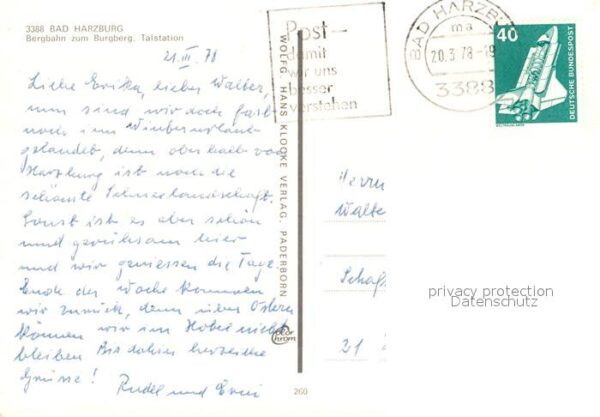 3388 BAD HARZBURG
Bergbahn zum Burgberg, Talstation
21.III.78
Liebe Erika, lieber Walter,
nun sind wir doch fast
noch im Winterurlaub
gelandet, denn oberhalb von
Harzburg ist noch die
schönste Schneelandschaft.
Sonst ist es aber schön
und geruhsam hier
und wir geniessen die Tage.
Ende der Woche kommen
wir zurück, denn über Ostern
können wir im Hotel nicht
bleiben Bis dahin herzliche
Grüsse! Rudel und
WOLFG. HANS KLOCKE VERLAG, PADERBORN
Color
Chrom
260
Post-
damit
wir uns
besser
verstehen
BAD HARZBURG
ma
20.3.78-19
3388
40
DEUTSCHE BUNDESPOST
Herrn
Walter
21
privacy protection
Datenschutz